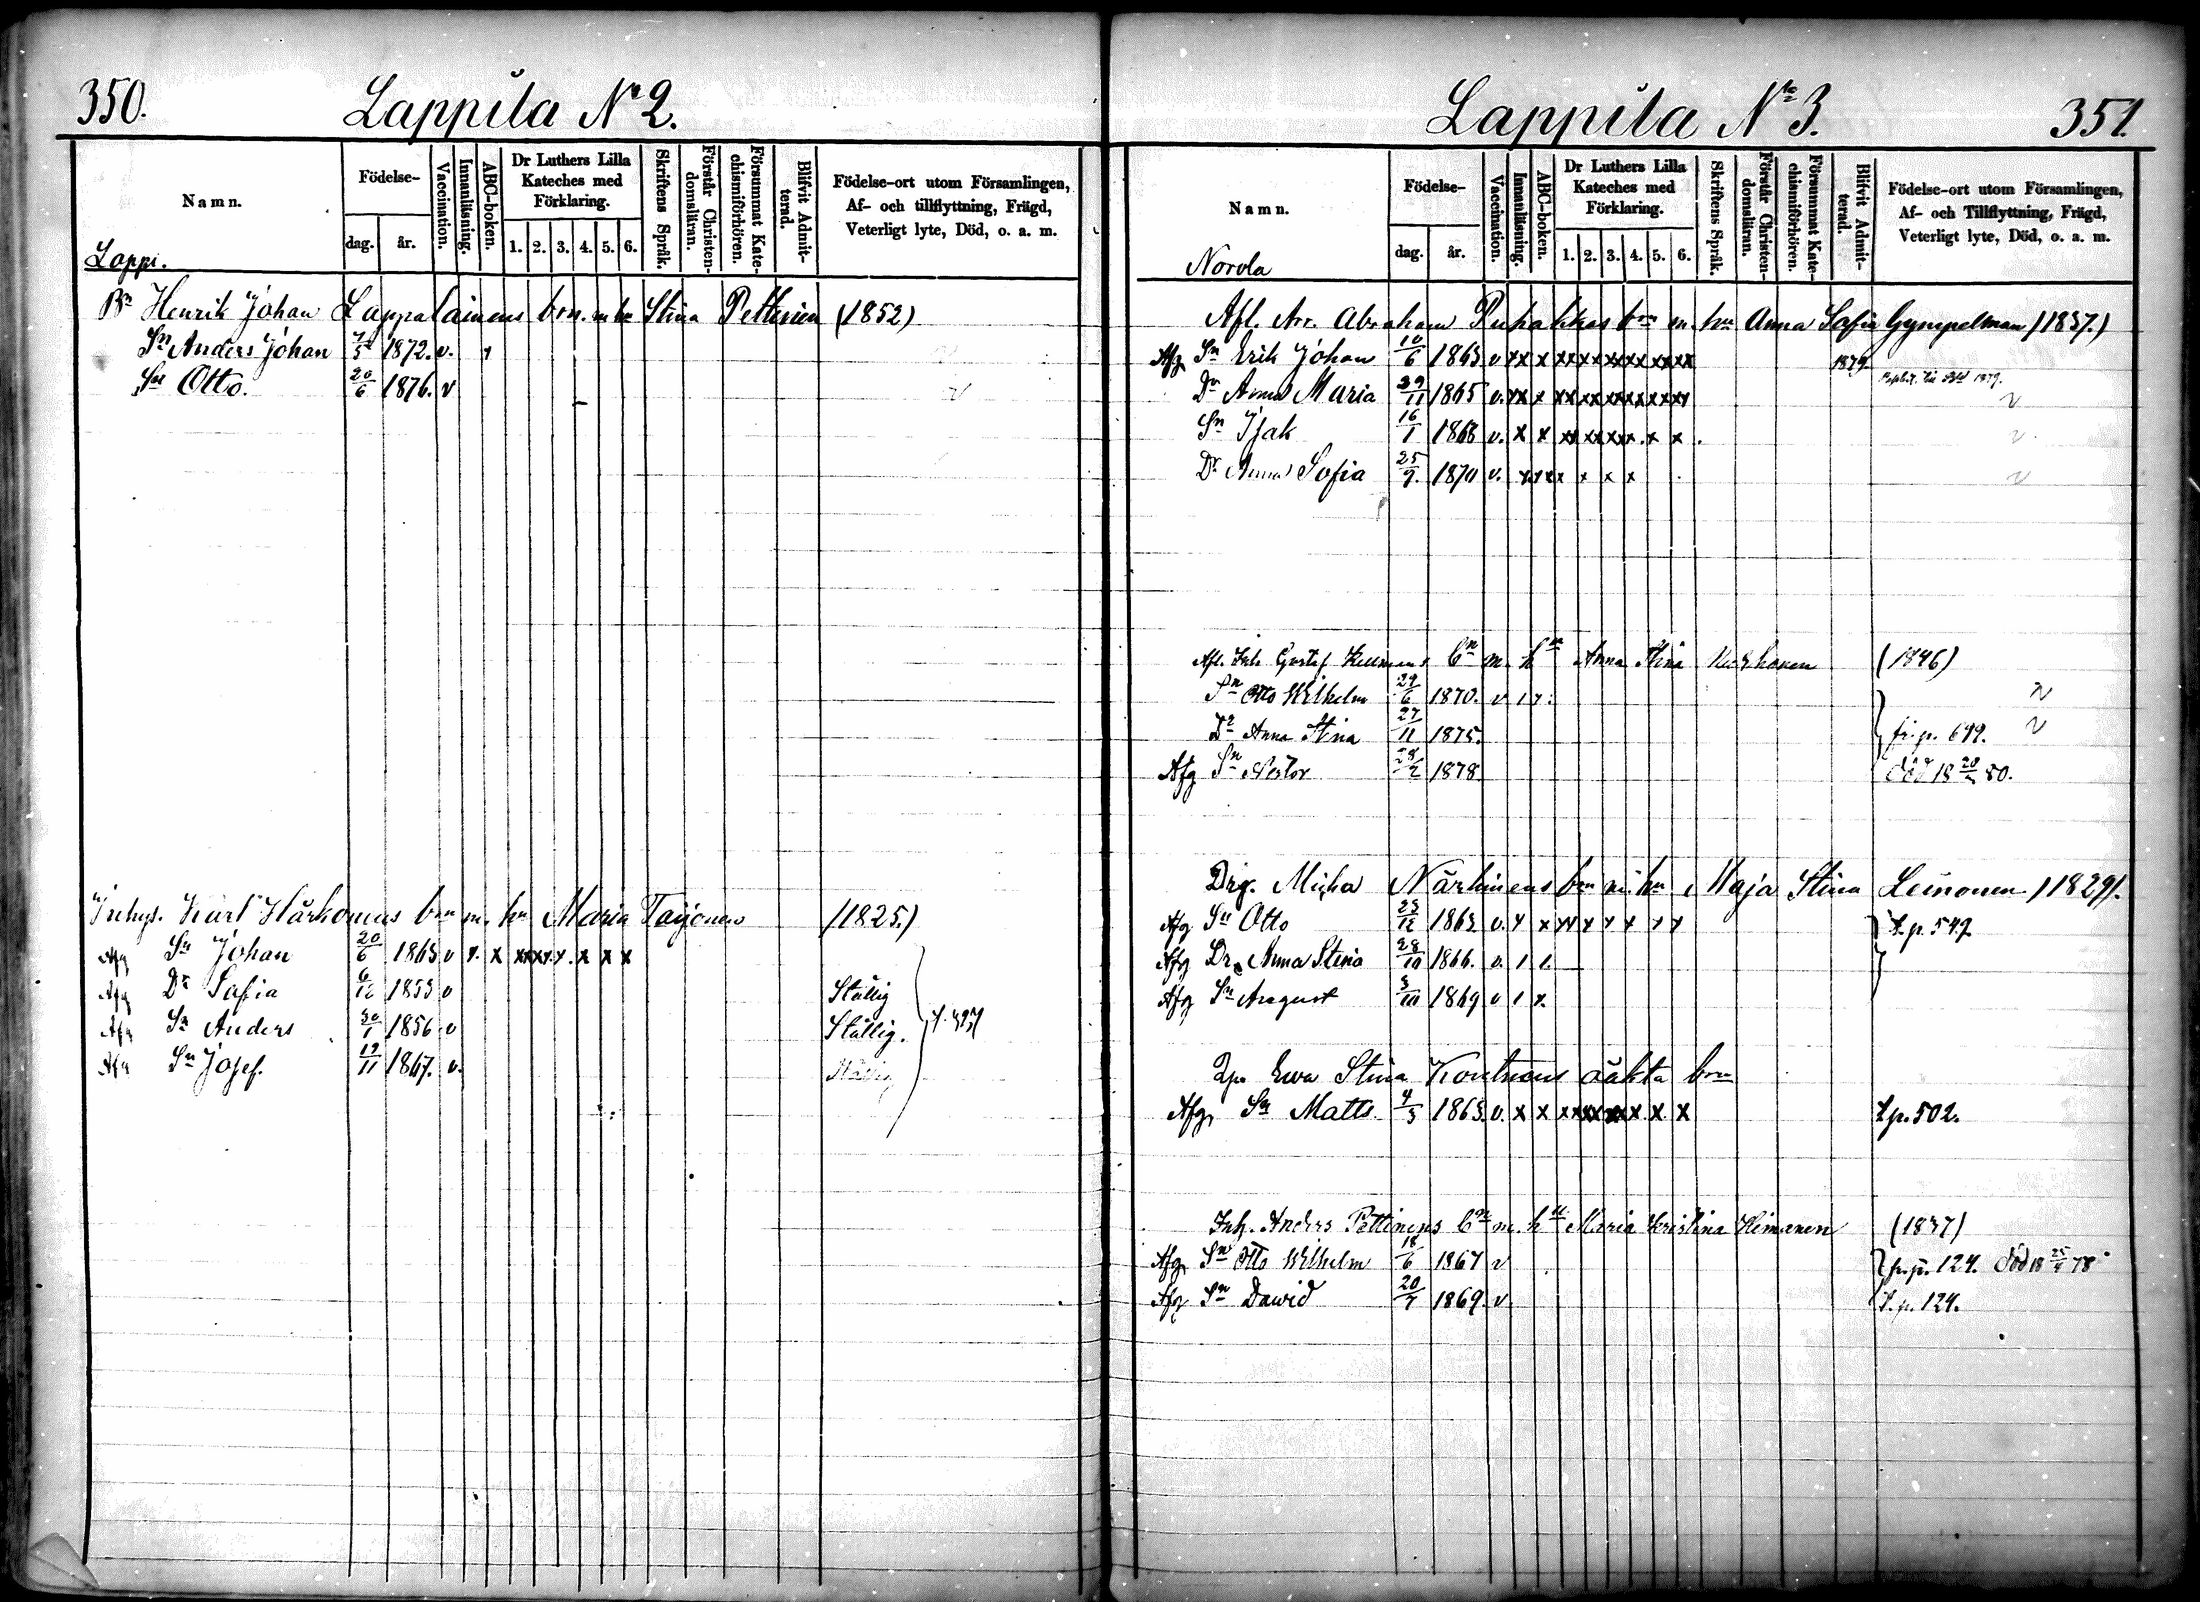 350. Lappila N:o 2.
Namn. Födelse- dag. år. Vaccination. Innanläsning. ABC-boken. Dr Luthers Lilla Kateches med Förklaring. 1. 2. 3. 4. 5. 6. Skriftens Språk. Förstår Christendomsläran. Försummat Katechismiförhören. Blifvit Admitterad. Födelse-ort utom Församlingen, Af- och tillflyttning, Frägd, Veterligt lyte, Död, o. a. m.
Lappi.
Bn Henrik Johan Lappalainens brn. m hu Stina Pettinen (1852)
Sn Anders Johan 7/5 1872. v.
Sn Otto. 20/6 1876. v
Inhys. Karl Härkönens brn m. hu Maria Taijonen (1825.)
Afg Sn Johan 20/6 1863 v x. x x x x x x x x
Afg Dr Sofia 6/12 1853 v Ställig
Afg Sn Anders 30/1 1856 v Ställig.
Afg Sn Josef. 19/11 1867. v. Ställig
351. Lappila N:o 3.
Namn. Födelse- dag. år. Vaccination. Innanläsning. ABC-boken. Dr Luthers Lilla Kateches med Förklaring. 1. 2. 3. 4. 5. 6. Skriftens Språk. Förstår Christendomsläran. Försummat Katechismiförhören. Blifvit Admitterad. Födelse-ort utom Församlingen, Af- och Tillflyttning, Frägd, Veterligt lyte, Död, o. a. m.
Norola
Afl. Arr. Abraham Puhakkas brn m. hu Anna Sofia Gympelman (1837.)
Afg Sn Erik Johan 10/6 1863 v xx x xx xx xx xx xx xx 1879.
Dr Anna Maria 29/11 1865 v. xx x xx xx xx xx xx xx v
Sn Isak 16/1 1868 v. x x xx xx xx x x v.
Dr Anna Sofia 25/9. 1870 v. x x x x x x x v
Afl. Inh. Gustaf Kellmans bn m. hu Anna Stina (1846)
Sn Otto Wilhelm 29/6 1870. v v
Dr Anna Stina 27/11 1875. fr. p. 699. v
Afg Sn Nestor 28/2 1878 Död 18 80.
Drg. Micha Närhinens brn m. hu Maja Stina Leinonen (1829).
Afg Sn Otto 23/12 1863. v. x x xx x x x x x t. p. 547.
Afg Dr. Anna Stina 28/10 1866. v. 1 1.
Afg Sn August 3/10 1869 v 1 x.
Ewa Stina oäkta brn
Afg Sn Matts. 4/5 1863. v. x x x x x x x x x t. p. 502.
Inh. Anders Pettinens bn m. hu Maria Kristina Himanen (1837)
Afg Sn Otto Wilhelm 18/6 1867 v fr. p. 124. Död 18 25/4 78
Afg Sn Dawid 20/7 1869. v t. p. 124.